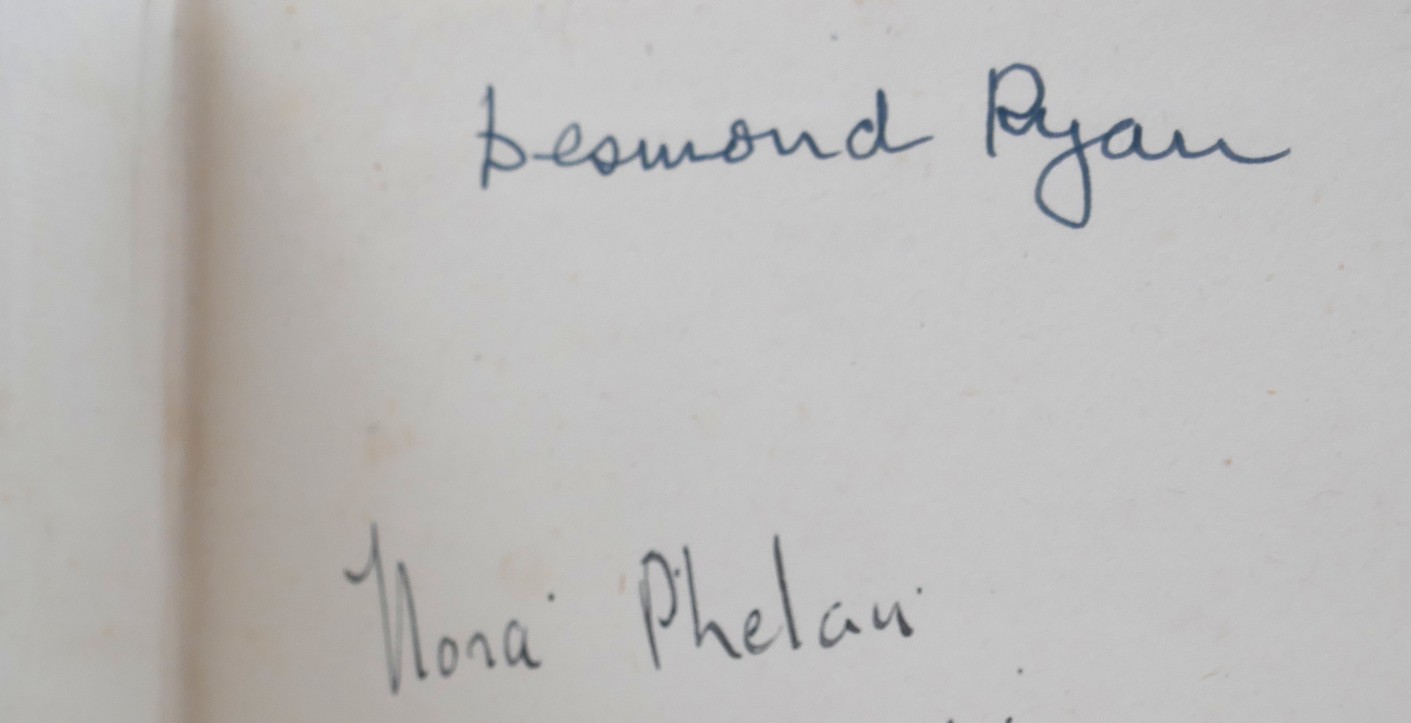 Desmond Ryan
Nora Phelan